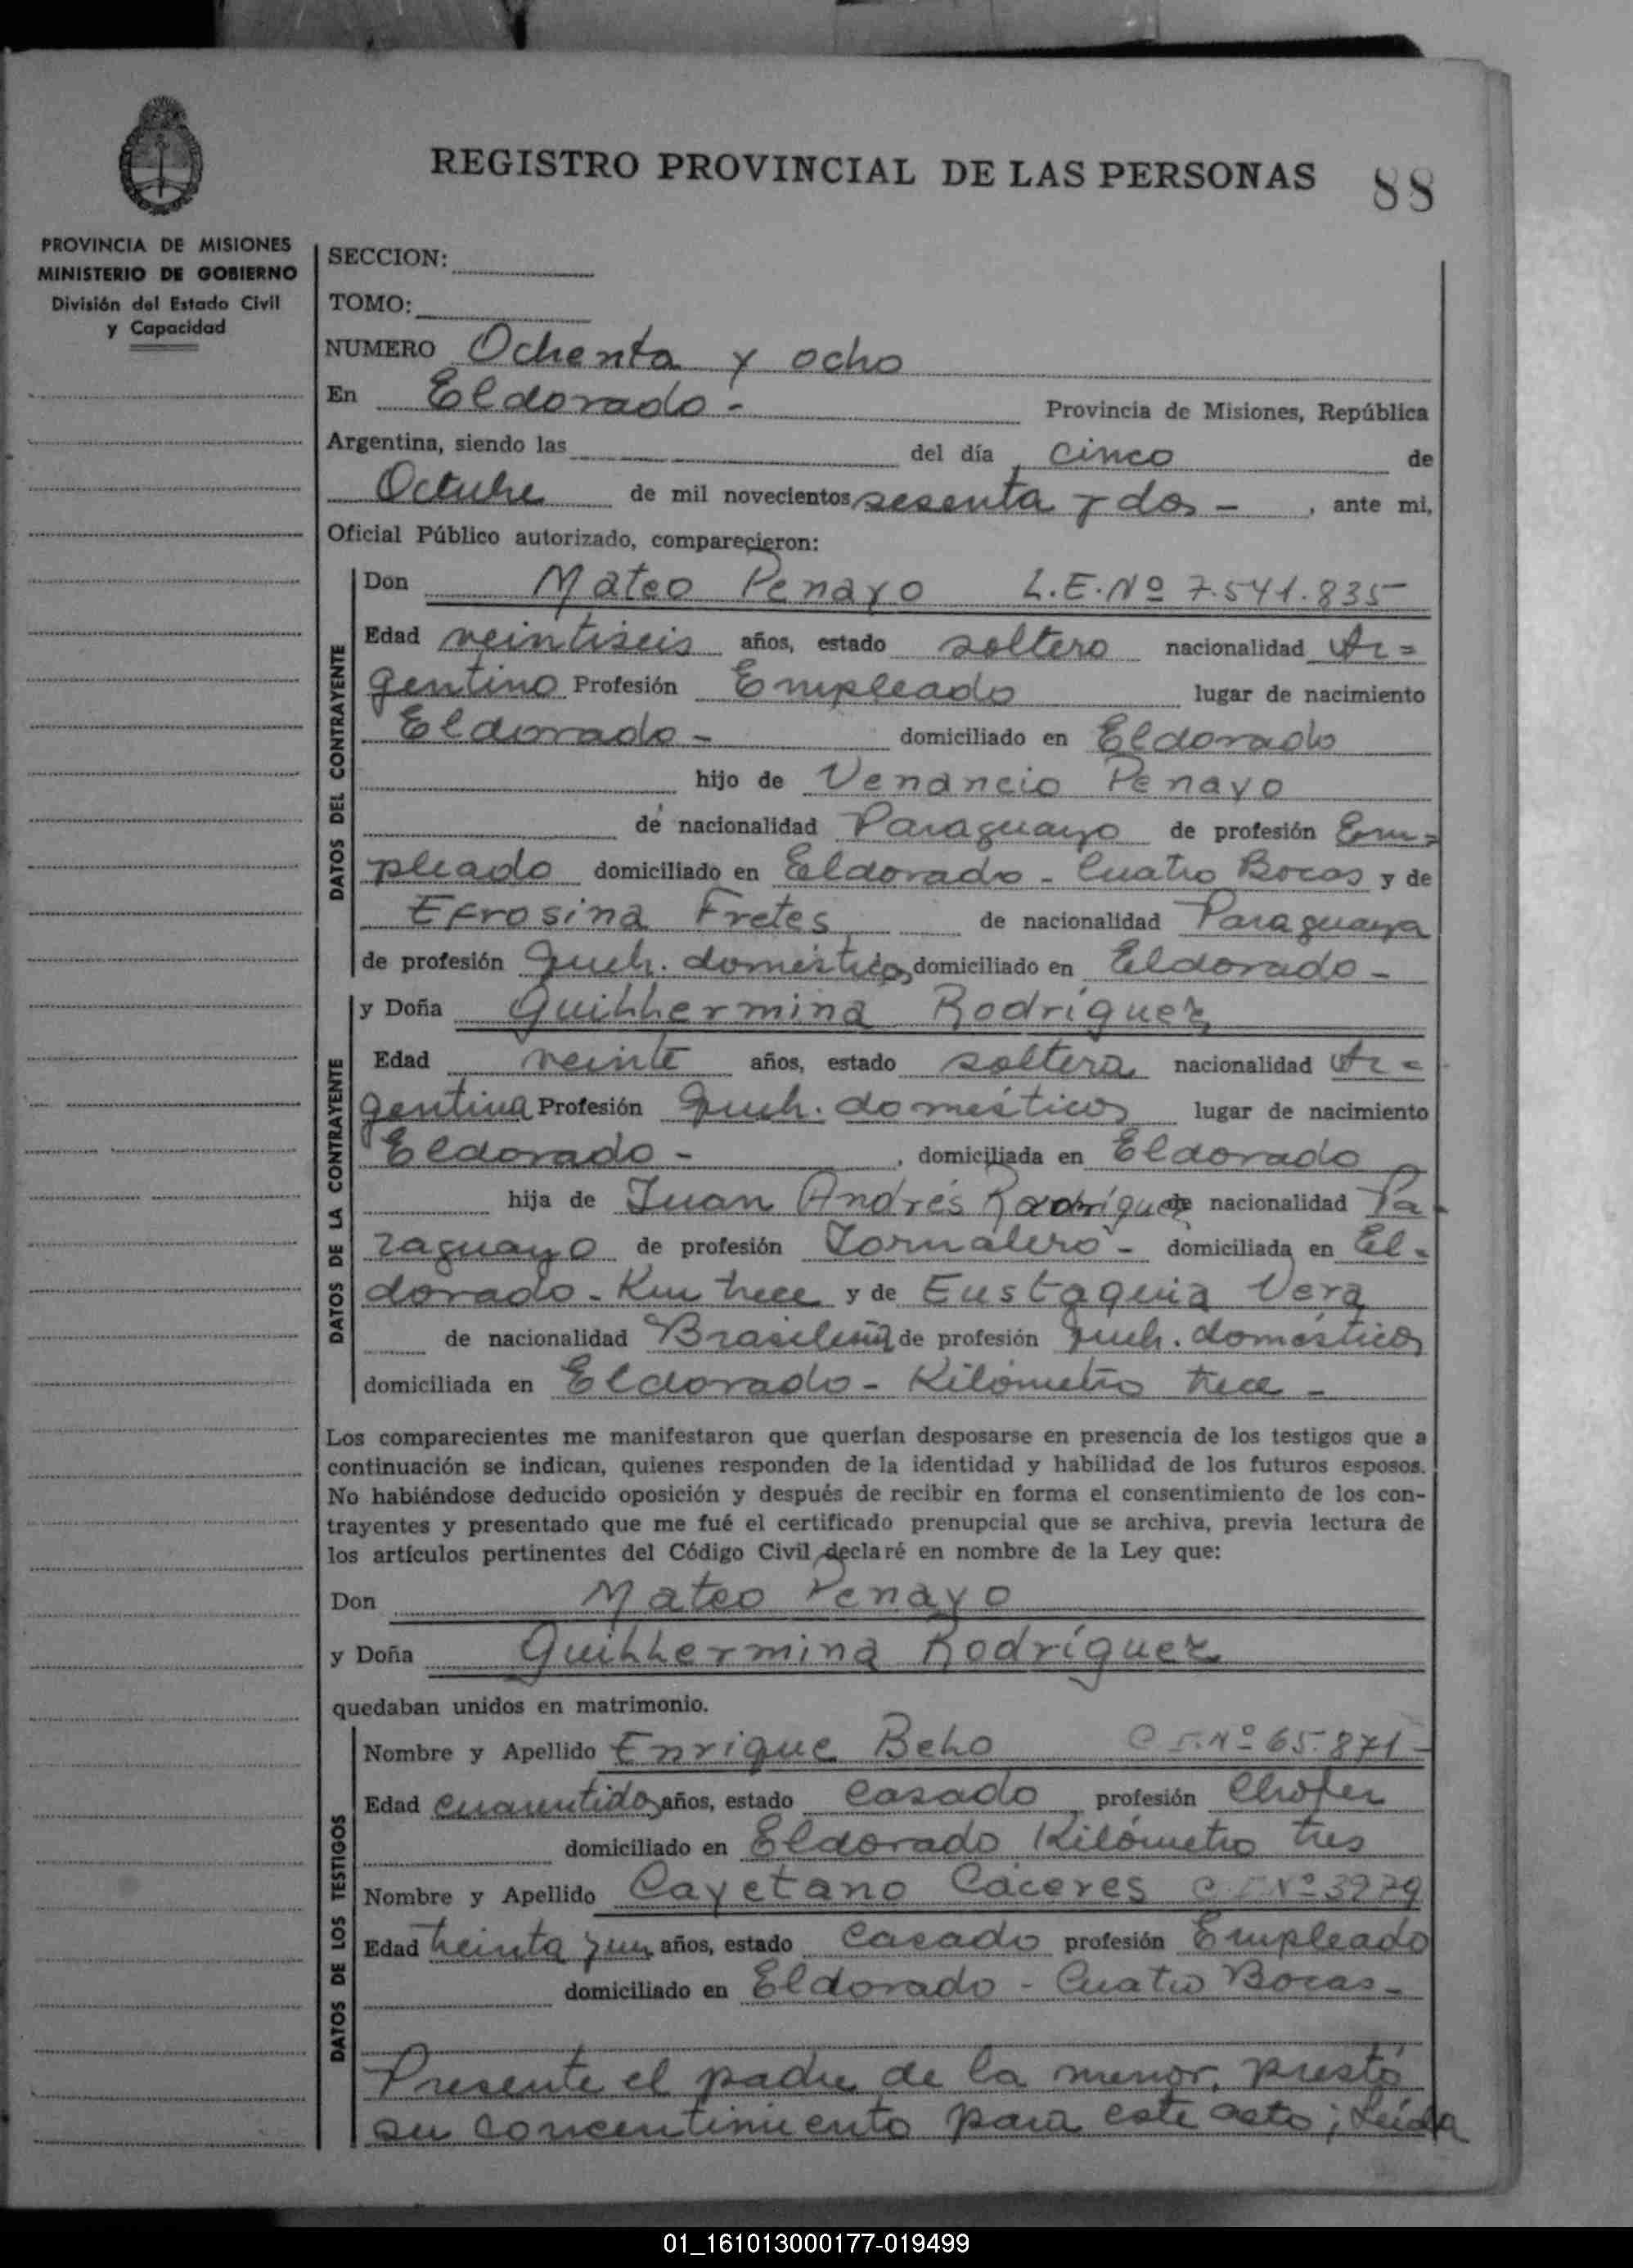 REGISTRO PROVINCIAL DE LAS PERSONAS 88
PROVINCIA DE MISIONES
MINISTERIO DE GOBIERNO
División del Estado Civil
y Capacidad
SECCION:
TOMO:
NUMERO Ochenta y ocho
En Eldorado - Provincia de Misiones, República
Argentina, siendo las del día cinco de
Octubre de mil novecientos sesenta y dos - , ante mi,
Oficial Público autorizado, comparecieron:
DATOS DEL CONTRAYENTE
Don Mateo Penayo L.E.Nº 7.541.835
Edad veintiseis años, estado soltero nacionalidad Ar=
gentino Profesión Empleado lugar de nacimiento
Eldorado - domiciliado en Eldorado
hijo de Venancio Penayo
de nacionalidad Paraguayo de profesión Em=
pleado domiciliado en Eldorado - Cuatro Bocas y de
Efrosina Fretes de nacionalidad Paraguaya
de profesión Queh. domésticos domiciliado en Eldorado -
DATOS DE LA CONTRAYENTE
y Doña Guihhermina Rodríguez
Edad veinte años, estado soltera nacionalidad Ar=
gentina Profesión Queh. domésticos lugar de nacimiento
Eldorado - , domiciliada en Eldorado
hija de Juan Andrés Rodríguez de nacionalidad Pa-
raguayo de profesión Jornalero - domiciliada en El-
dorado - Km trece y de Eustaquia Vera
de nacionalidad Brasileña de profesión Queh. domésticos
domiciliada en Eldorado - Kilómetro trece -
Los comparecientes me manifestaron que querían desposarse en presencia de los testigos que a
continuación se indican, quienes responden de la identidad y habilidad de los futuros esposos.
No habiéndose deducido oposición y después de recibir en forma el consentimiento de los con-
trayentes y presentado que me fué el certificado prenupcial que se archiva, previa lectura de
los artículos pertinentes del Código Civil declaré en nombre de la Ley que:
Don Mateo Penayo
y Doña Guihhermina Rodríguez
quedaban unidos en matrimonio.
DATOS DE LOS TESTIGOS
Nombre y Apellido Enrique Beho C.I.Nº 65.871-
Edad cuarentidos años, estado Casado profesión Chofer
domiciliado en Eldorado Kilómetro tres
Nombre y Apellido Cayetano Cáceres C.I.Nº 3979
Edad treinta y un años, estado Casado profesión Empleado
domiciliado en Eldorado - Cuatro Bocas -
Presente el padre de la menor, prestó
su concentimiento para este acto; Leída
01_161013000177-019499